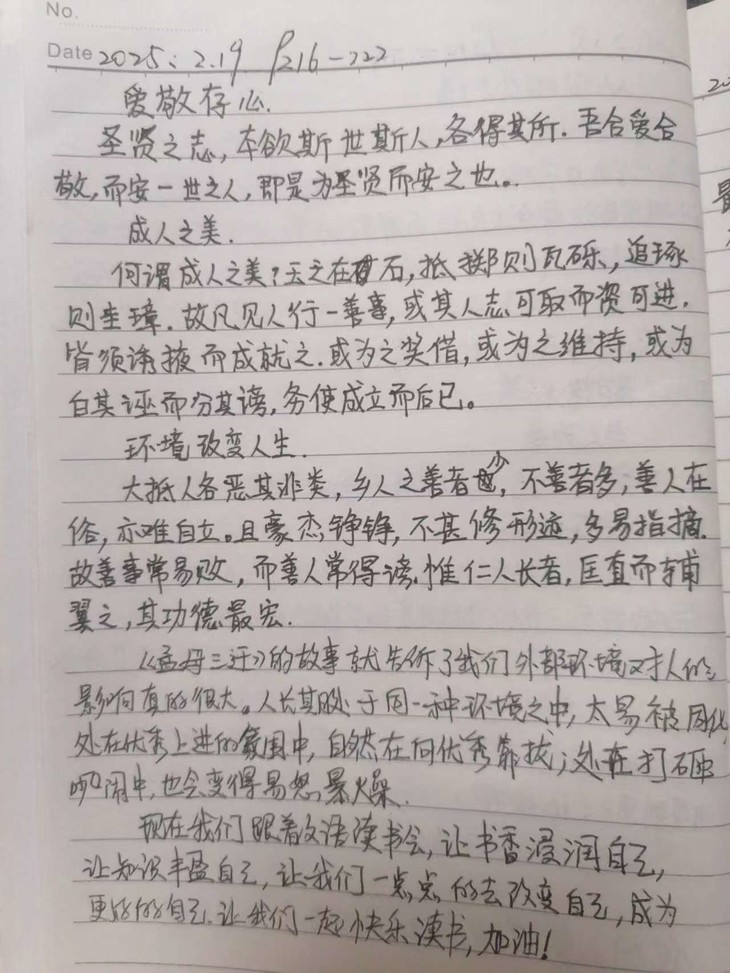 No.
Date 2025.2.19 P216-222
爱敬存心.
圣贤之志,本欲斯世斯人,各得其所.吾合爱合
敬,而安一世之人,即是为圣贤而安之也。
成人之美.
何谓成人之美?玉之在石,抵掷则瓦砾,追琢
则圭璋.故凡见人行一善事,或其人志可取而资可进,
皆须诱掖而成就之.或为之奖借,或为之维持,或为
白其诬而分其谤,务使成立而后已。
环境改变人生.
大抵人各恶其非类,乡人之善者少,不善者多,善人在
俗,亦难自立。且豪杰铮铮,不甚修形迹,多易指摘.
故善事常易败,而善人常得谤.惟仁人长者,匡直而辅
翼之,其功德最宏.
《孟母三迁》的故事就告诉了我们外部环境对人的
影响真的很大。人长期处于同一种环境之中,太易被同化,
处在优秀上进的氛围中,自然在向优秀靠拢;处在打砸
吵闹中,也会变得易怒暴燥.
现在我们跟着文语读书会,让书香浸润自己,
让知识丰盈自己,让我们一点点的去改变自己,成为
更好的自己.让我们一起快乐读书,加油!
20
最